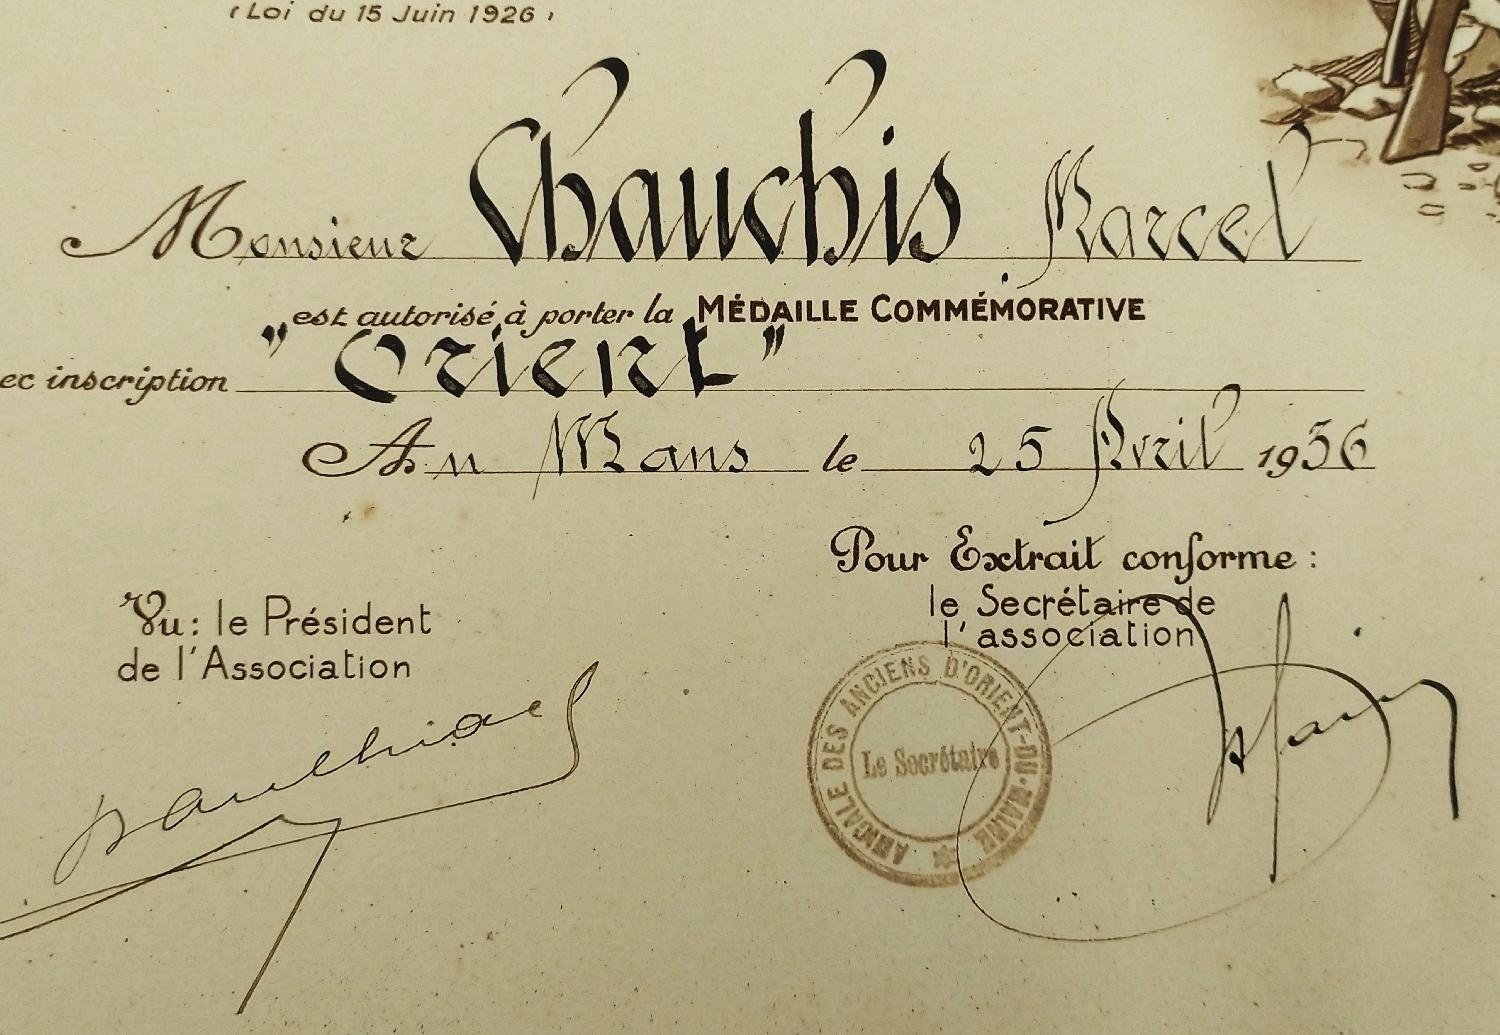 (Loi du 15 Juin 1926)
Monsieur Chauchis Marcel
est autorisé à porter la MÉDAILLE COMMÉMORATIVE
ec inscription "Orient"
Au Mans le 25 Avril 1936
Pour Extrait conforme :
le Secrétaire de
l'association
Vu : le Président
de l'Association
AMICALE DES ANCIENS D'ORIENT-DU-MAINE
Le Secrétaire